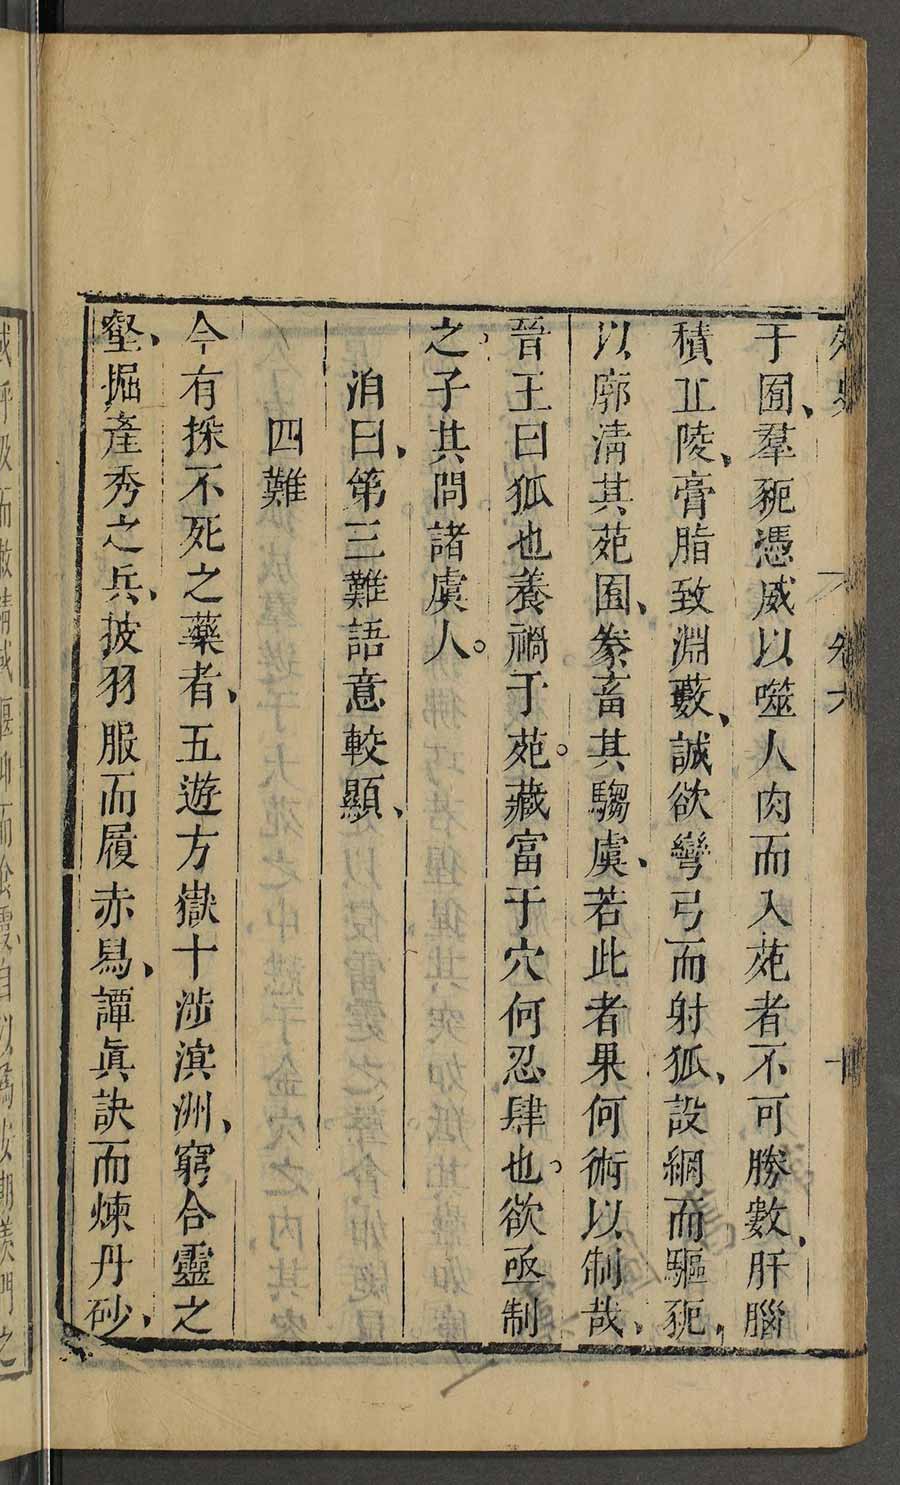 外史 卷六 十
于囿、羣豝憑威以噬人肉而入苑者不可勝數、肝腦
積丘陵、膏脂致淵藪、誠欲彎弓而射狐、設網而驅豝、
以廓清其苑囿、豢畜其騶虞、若此者果何術以制哉、
晉王曰狐也養禍于苑。藏富于穴何忍肆也。欲亟制
之、子其問諸虞人。
洎曰、第三難語意較顯、
四難
今有採不死之藥者、五遊方嶽十涉溟洲、窮合靈之
壑、掘產秀之兵、披羽服而履赤舄、譚眞訣而煉丹砂、